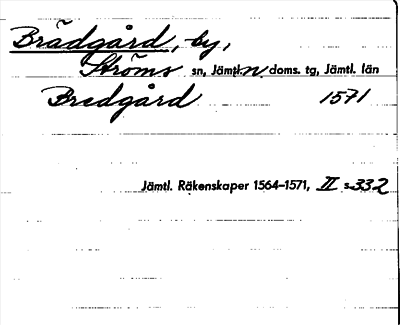 Brädgård, by,
Ströms sn, Jämtl. n doms. tg, Jämtl. län
Bredgård 1571
Jämtl. Räkenskaper 1564-1571, II s. 332